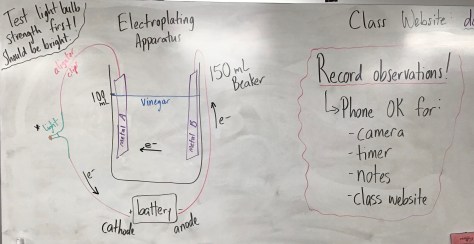 Test light bulb
strength first!
Should be bright.
Electroplating
Apparatus
alligator
clip
100
mL
vinegar
metal A
metal B
150 mL
Beaker
* light
e-
e-
e-
battery
cathode
anode
Class Website
Record observations!
↳Phone OK for:
- camera
- timer
- notes
- class website